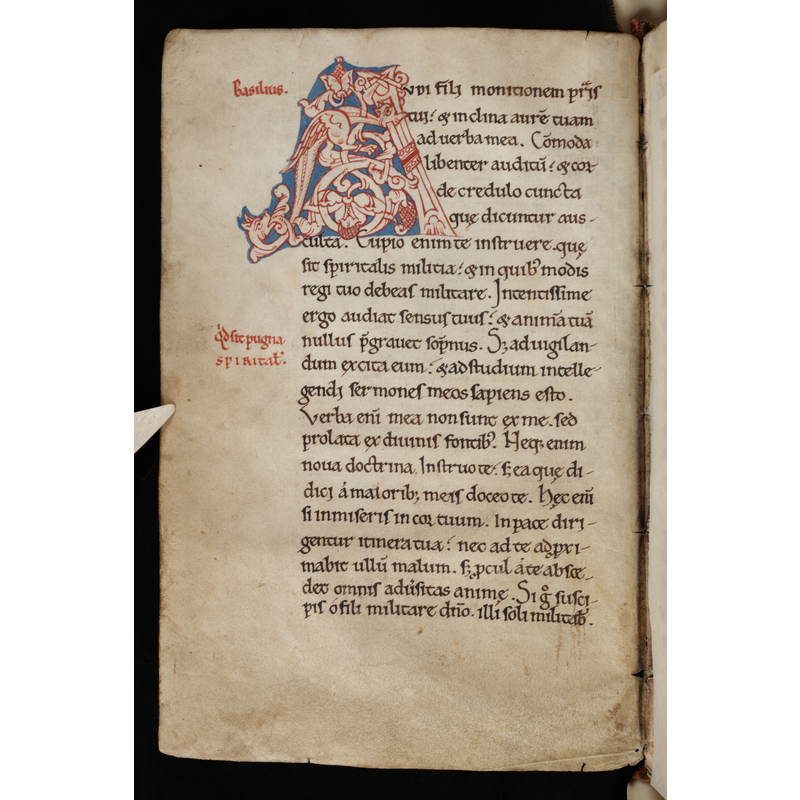 Basilius.
Audi fili monitionem pr̄is
tui: & inclina aurē tuam
ad verba mea. Cōmoda
libenter auditū: & cor
de credulo cuncta
quę dicuntur aus-
culta. Cupio enim te instruere. quę
sit spiritalis militia: & in quib; modis
regi tuo debeas militare. Intentissime
ergo audiat sensus tuus: & animā tuā
qd̄ sit pugna
spirital'.
nullus p̄grauet sop̄nus. S; ad uigilan-
dum excita eum: & ad studium intelle-
gendi sermones meos sapiens esto.
Verba eni mea non sunt ex me. sed
prolata ex diuinis fontib;. Neq; enim
noua doctrina. Instruo te. s; ea quę di-
dici á maiorib; meis doceo te. Hęc eni
si inmiseris in cor tuum. In pace diri-
gentur itinera tua: nec ad te adpxi-
mabit ullū malum. s; pcul á te absce-
det omnis aduersitas animę. Si g° susci-
pis ó fili militare dño. illi soli militab'.